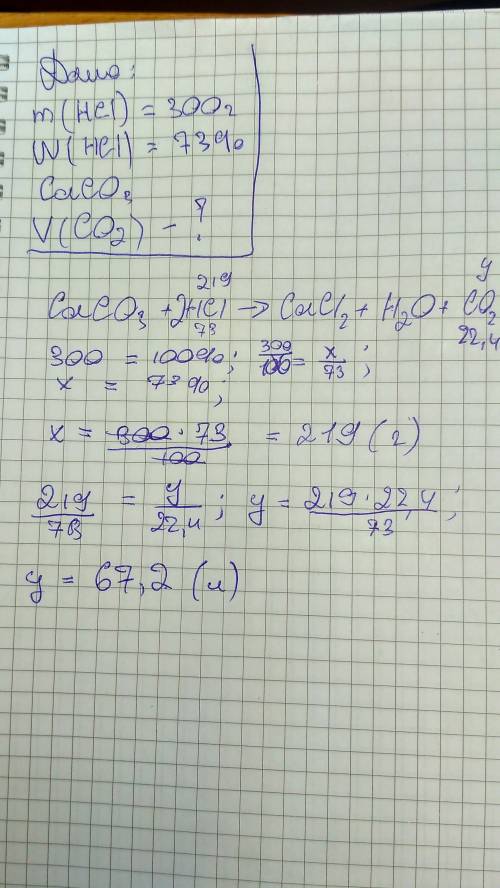 Дано:
m(HCl) = 300г
W(HCl) = 73%
CaCO3
V(CO2) - ?
219 y
CaCO3 + 2HCl → CaCl2 + H2O + CO2
73 22,4
300 = 100%; 300/100 = x/73;
x = 73%;
x = 300·73/100 = 219 (г)
219/73 = y/22,4; y = 219·22,4/73;
y = 67,2 (л)